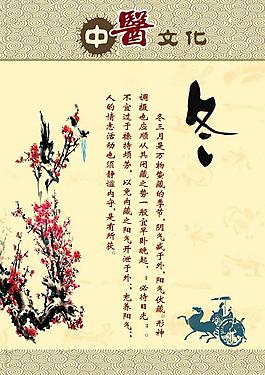 中醫文化
冬
冬三月是万物蛰藏的季节，阴气盛于外，阳气伏藏。形神
调摄也应顺从其闭藏之势一般宜早卧晚起，：必待日光：。
不宜过于操持烦劳，以免内藏之阳气开泄于外；，宪养阳气；
人的情志活动也须静谧内守，是有所获。